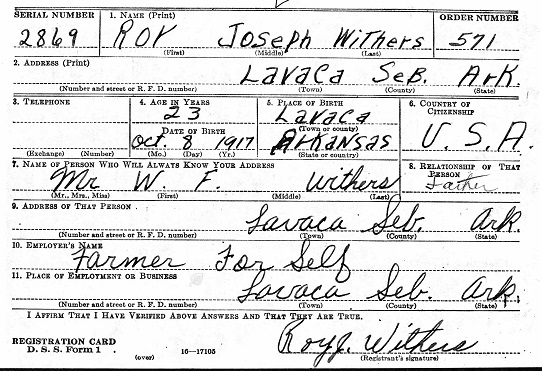 SERIAL NUMBER 1. NAME (Print) ORDER NUMBER
2869 Roy Joseph Withers 571
(First) (Middle) (Last)
2. ADDRESS (Print)
Lavaca Seb. Ark.
(Number and street or R. F. D. number) (Town) (County) (State)
3. TELEPHONE 4. AGE IN YEARS 5. PLACE OF BIRTH 6. COUNTRY OF CITIZENSHIP
23 Lavaca
DATE OF BIRTH (Town or county)
Oct. 8 1917 Arkansas U. S. A.
(Exchange) (Number) (Mo.) (Day) (Yr.) (State or country)
7. NAME OF PERSON WHO WILL ALWAYS KNOW YOUR ADDRESS 8. RELATIONSHIP OF THAT PERSON
Mr W. F. Withers Father
(Mr., Mrs., Miss) (First) (Middle) (Last)
9. ADDRESS OF THAT PERSON
Lavaca Seb. Ark.
(Number and street or R. F. D. number) (Town) (County) (State)
10. EMPLOYER'S NAME
Farmer For Self
11. PLACE OF EMPLOYMENT OR BUSINESS
Lavaca Seb. Ark.
(Number and street or R. F. D. number) (Town) (County) (State)
I AFFIRM THAT I HAVE VERIFIED ABOVE ANSWERS AND THAT THEY ARE TRUE.
REGISTRATION CARD
D. S. S. Form 1 (over) 16—17105 Roy J. Withers
(Registrant's signature)